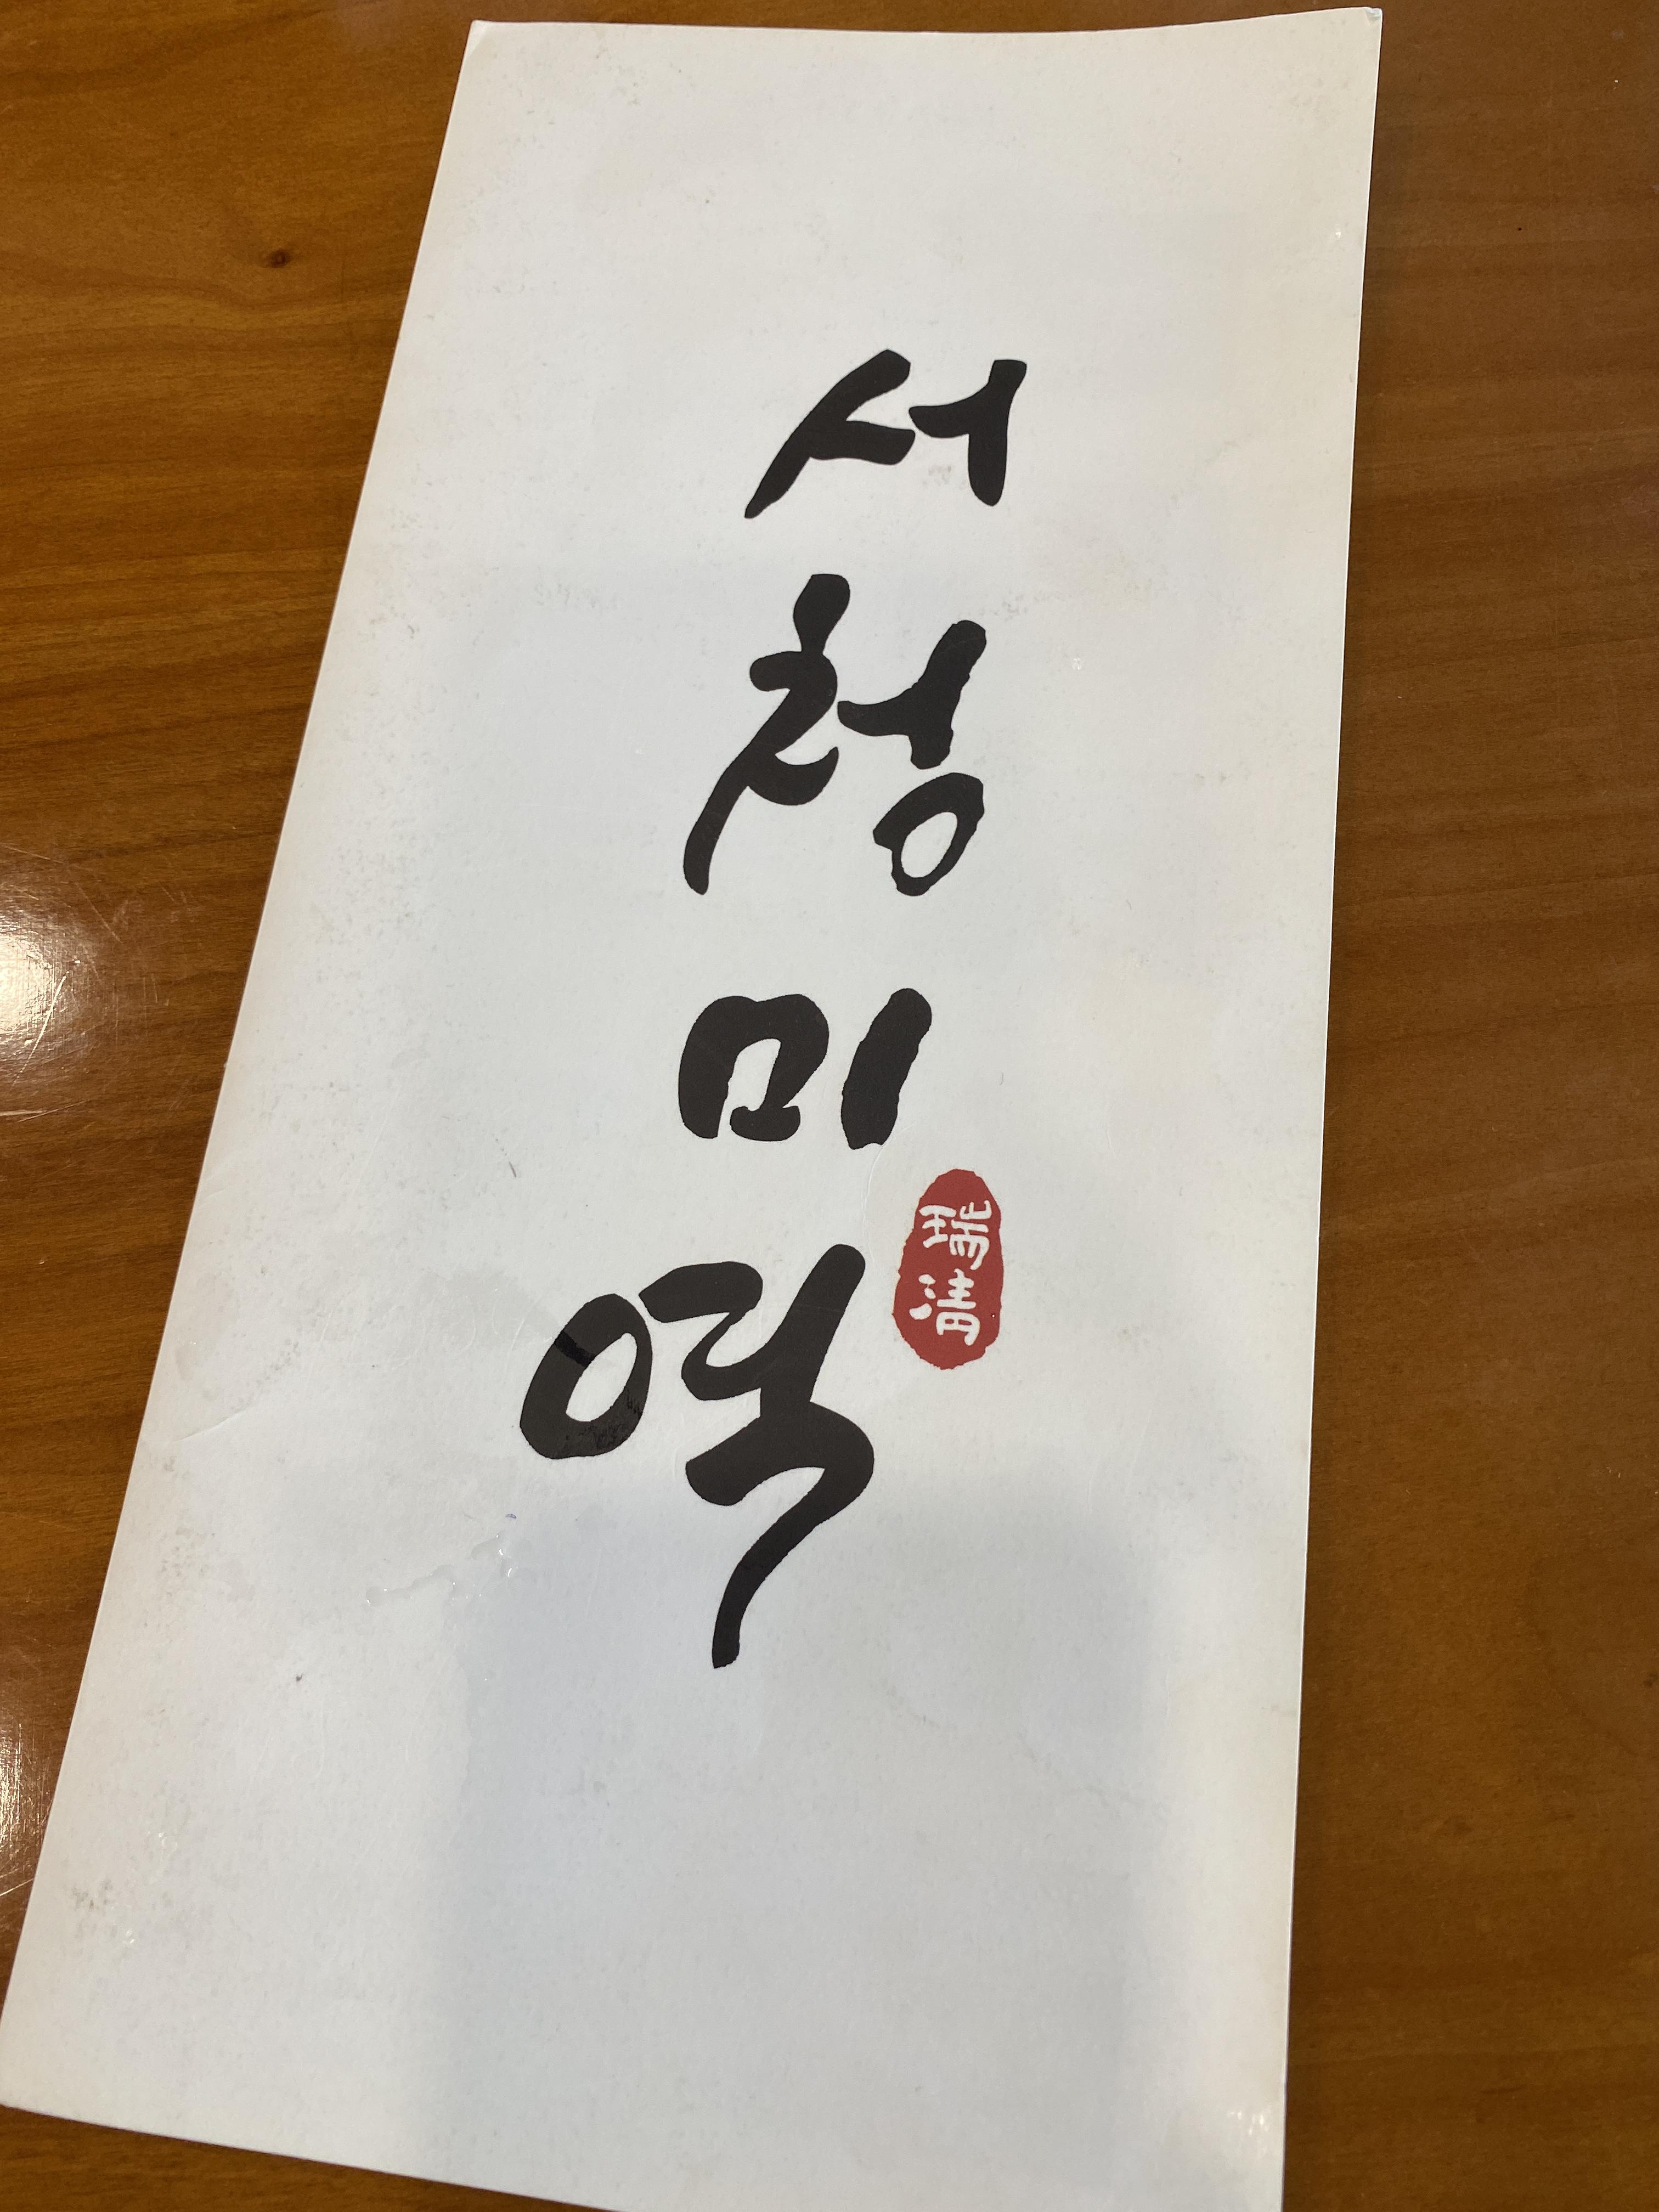 서청미역
瑞清